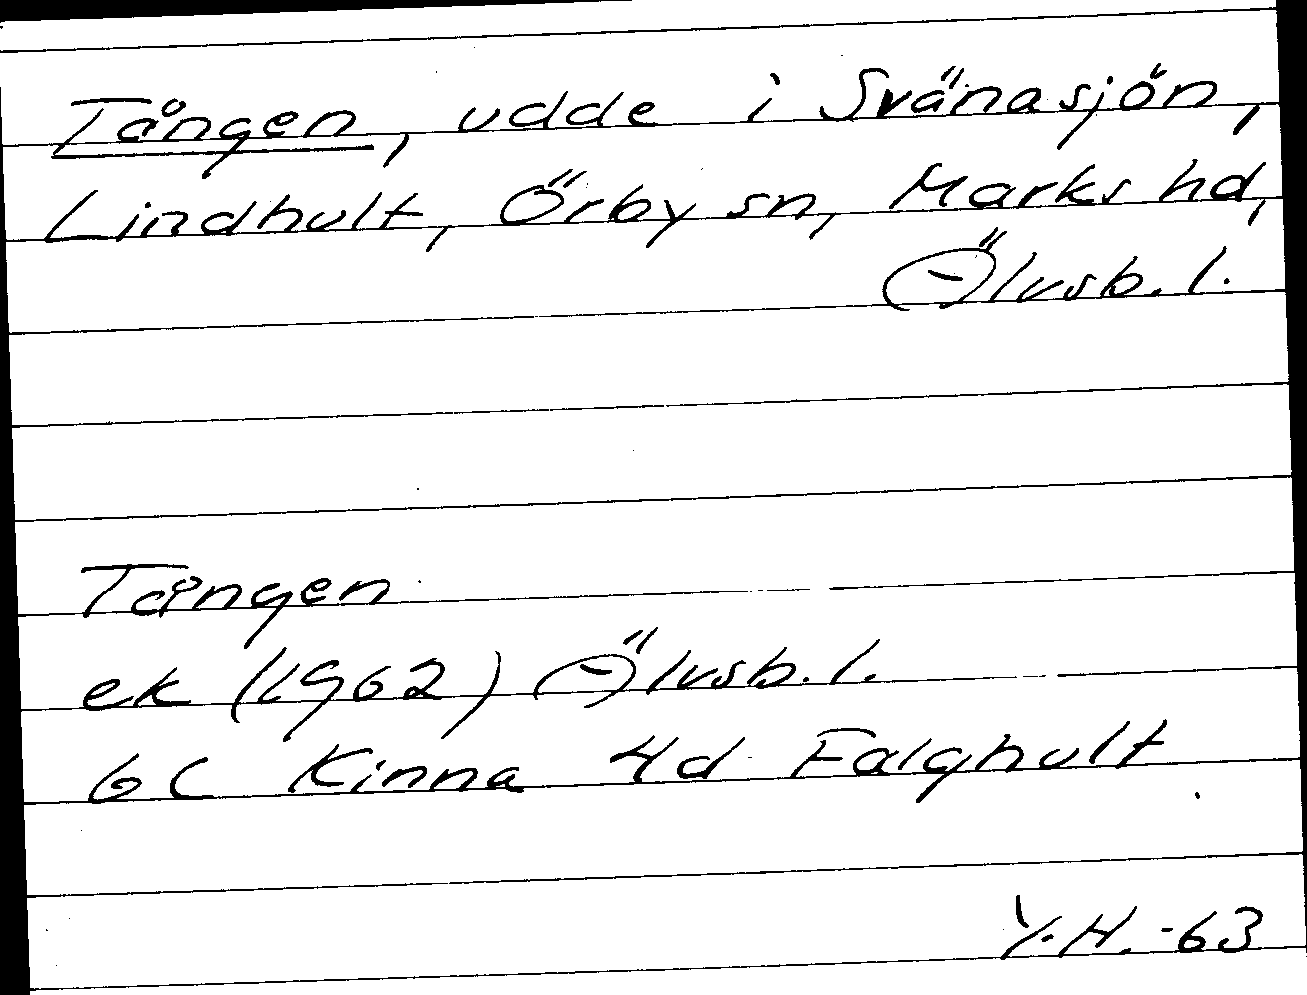 Tången, udde i Svänasjön,
Lindhult, Örby sn, Marks hd,
Älvsb. l.
Tången
ek (1962) Älvsb. l.
6C Kinna 4d Falghult
Y.H. -63